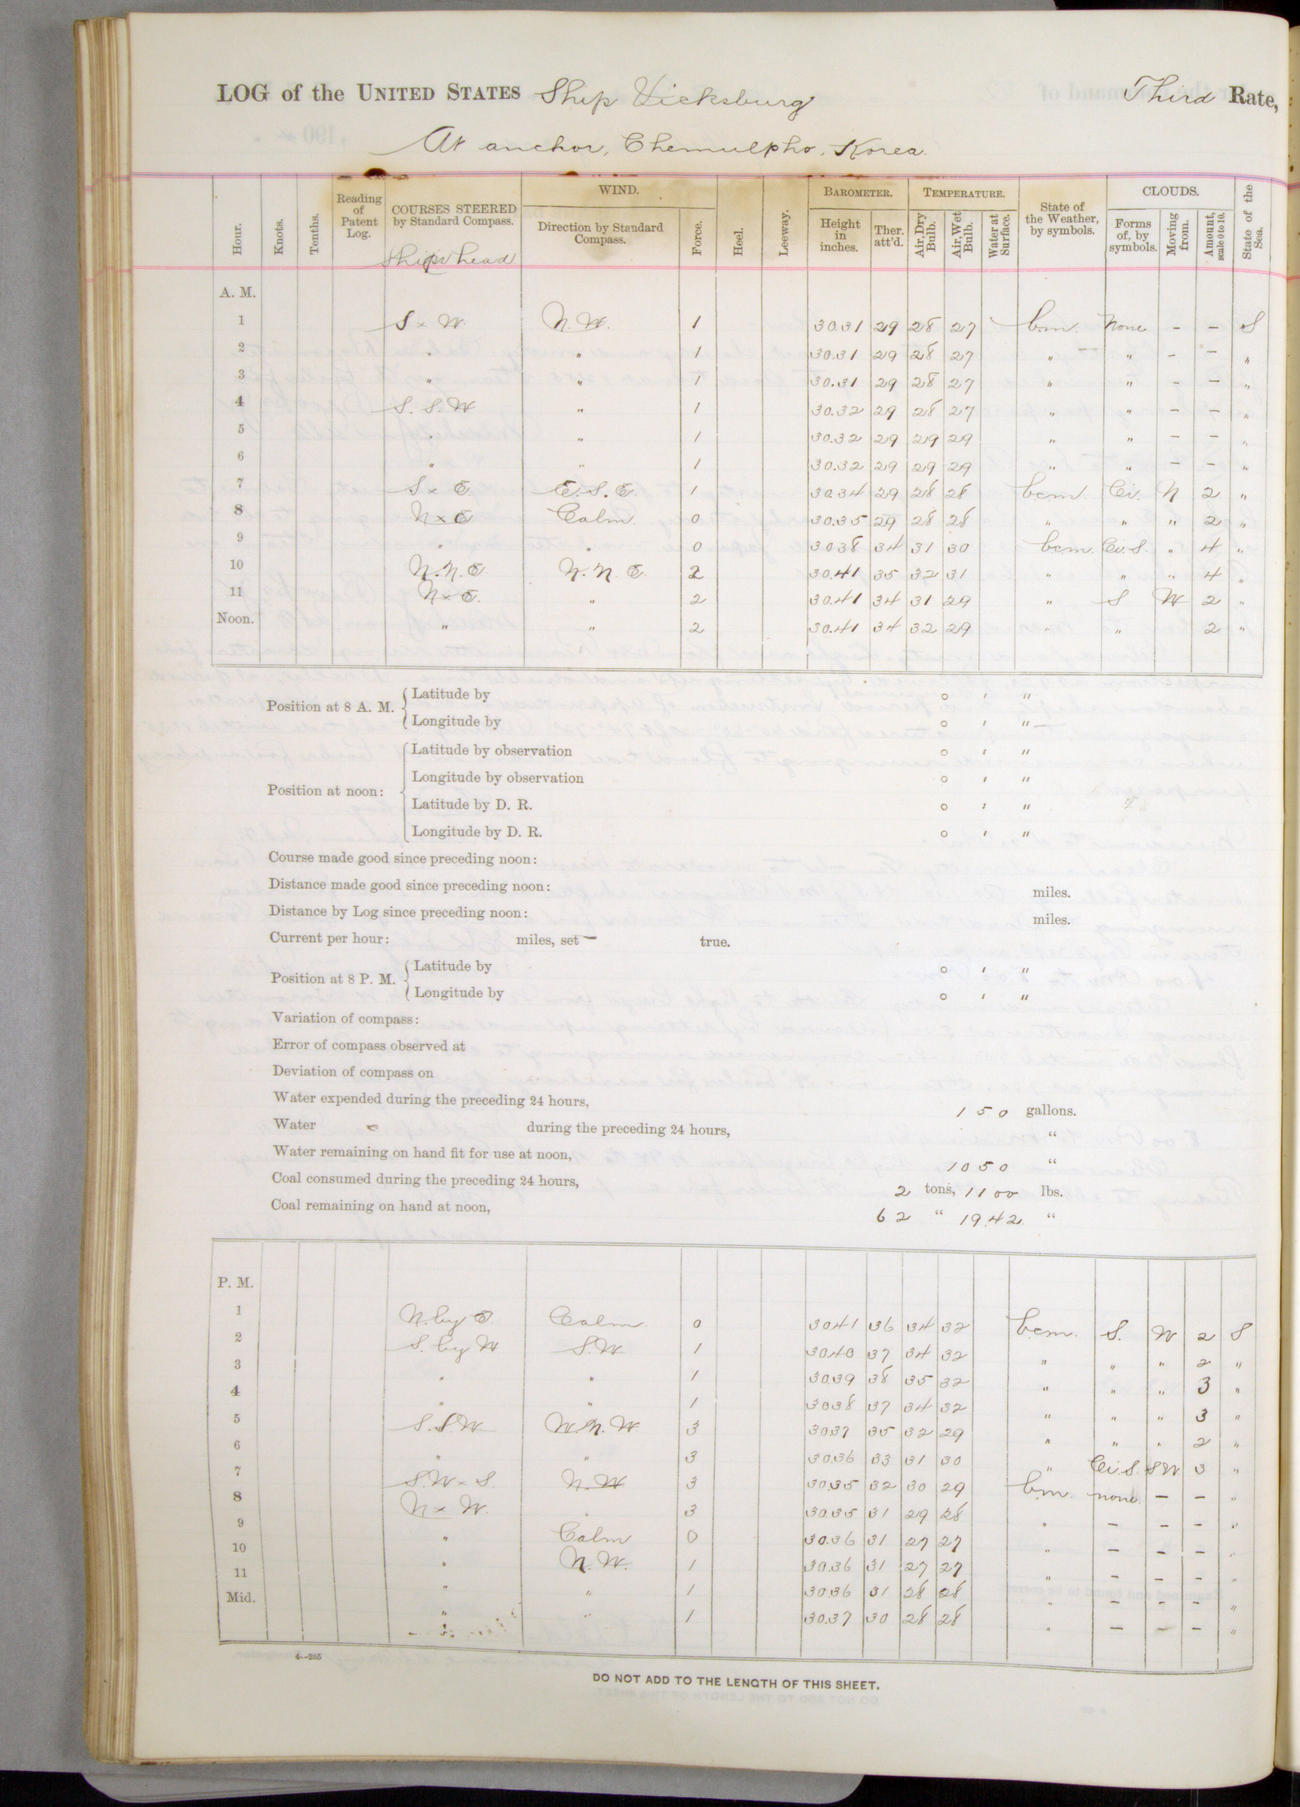 LOG of the UNITED STATES Ship Vicksburg Third Rate,
At anchor, Chemulpho, Korea.
Hour. Knots. Tenths. Reading of Patent Log. COURSES STEERED by Standard Compass. WIND. Direction by Standard Compass. Force. Heel. Leeway. BAROMETER. Height in inches. Ther. att'd. TEMPERATURE. Air, Dry Bulb. Air, Wet Bulb. Water at Surface. State of the Weather, by symbols. CLOUDS. Forms of, by symbols. Moving from. Amount, scale 0 to 10. State of the Sea.
Ship's head
A. M.
1 S x W. N. W. 1 30.31 29 28 27 bcm. None - - S
2 " " 1 30.31 29 28 27 " " - - "
3 " " 1 30.31 29 28 27 " " - - "
4 S. S. W " 1 30.32 29 28 27 " " - - "
5 " " 1 30.32 29 29 29 " " - - "
6 " " 1 30.32 29 29 29 " " - - "
7 S x E. E. S. E. 1 30.34 29 28 28 bcm Ci. N 2 "
8 N x E Calm 0 30.35 29 28 28 " " " 2 "
9 " " 0 30.38 34 31 30 bcm. Ci. S. " 4 "
10 N. N. E N. N. E. 2 30.41 35 32 31 " " " 4 "
11 N x E. " 2 30.41 34 31 29 " S W 2 "
Noon. " " 2 30.41 34 32 29 " " 2 "
Position at 8 A. M. Latitude by ° ' "
Longitude by ° ' "
Position at noon: Latitude by observation ° ' "
Longitude by observation ° ' "
Latitude by D. R. ° ' "
Longitude by D. R. ° ' "
Course made good since preceding noon:
Distance made good since preceding noon: miles.
Distance by Log since preceding noon: miles.
Current per hour: miles, set true.
Position at 8 P. M. Latitude by ° ' "
Longitude by ° ' "
Variation of compass:
Error of compass observed at
Deviation of compass on
Water expended during the preceding 24 hours, 150 gallons.
Water during the preceding 24 hours, "
Water remaining on hand fit for use at noon, 1050 "
Coal consumed during the preceding 24 hours, 2 tons, 1100 lbs.
Coal remaining on hand at noon, 62 " 1942 "
P. M.
1 N. by E. Calm 0 30.41 36 34 32 bcm. S. W 2 S
2 S. by W S. W 1 30.40 37 34 32 " " " 2 "
3 " " 1 30.39 38 35 32 " " " 3 "
4 " " 1 30.38 37 34 32 " " " 3 "
5 S. S W. W. N. W. 3 30.37 35 32 29 " " " 2 "
6 " " 3 30.36 33 31 30 " Ci. S. SW 3 "
7 S. W x S. N. W 3 30.35 32 30 29 bm. none. - - "
8 N x W. " 3 30.35 31 29 28 " - - - "
9 " Calm 0 30.36 31 27 27 " - - - "
10 " N. W. 1 30.36 31 27 27 " - - - "
11 " " 1 30.36 31 28 28 " - - - "
Mid. " " 1 30.37 30 28 28 " - - - "
4--255
DO NOT ADD TO THE LENGTH OF THIS SHEET.